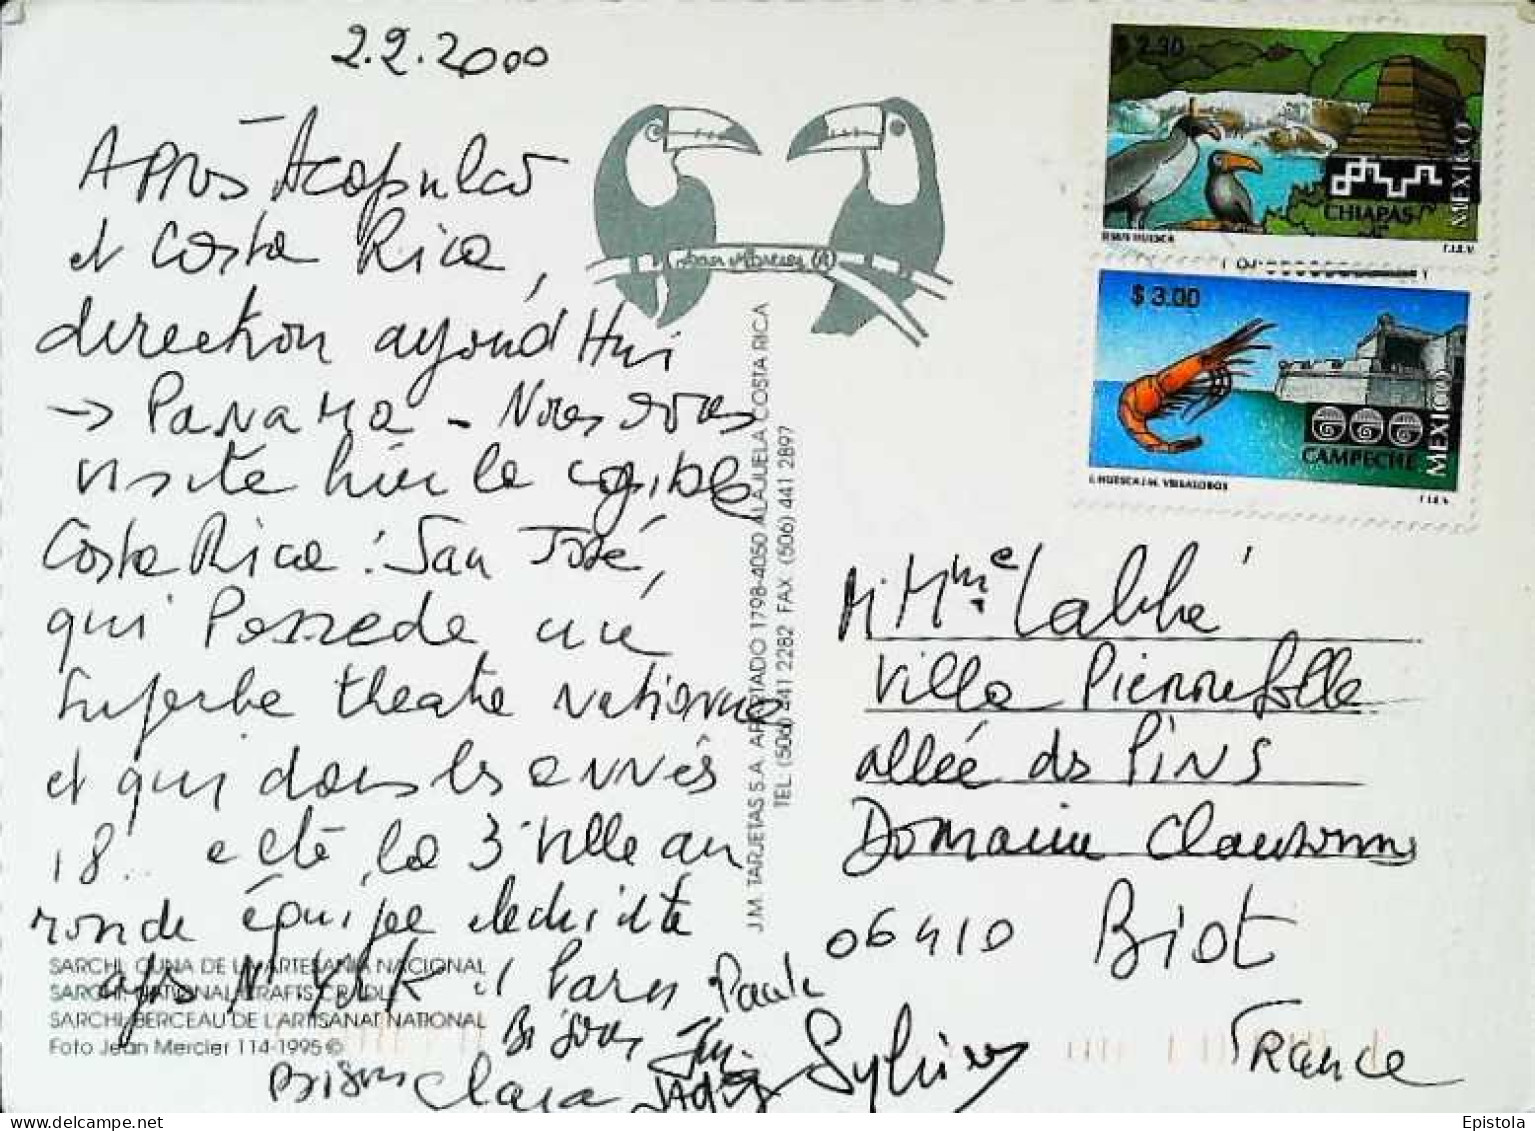 2.2.2000
Après Acapulco
et Costa Rica,
direction aujourd'Hui
→ PANAMA - Nous avons
visité hier la capitale
Costa Rica : San José,
qui Possède un
superbe theatre National
et qui dans les années
18.. a été, la 3e ville au
monde équipée électricité
après N. York et Paris
Bisous
Bisous Clara
Paule
Sylvie
Jean Mercier
J.M. TARJETAS S.A. APARTADO 1798-4050 ALAJUELA COSTA RICA
TEL. (506) 441 2282 FAX (506) 441 2897
$ 2.30
CHIAPAS
MEXICO
T.I.E.V.
$ 3.00
CAMPECHE
MEXICO
T.I.E.V.
M Mme Labbé
Villa Pierrefolle
allée des PINS
Domaine Clausonne
06410 Biot
France
SARCHI, CUNA DE LA ARTESANIA NACIONAL
SARCHI, NATIONAL CRAFTS CRADLE
SARCHI, BERCEAU DE L'ARTISANAT NATIONAL
Foto Jean Mercier 114-1995 ©
Epistola